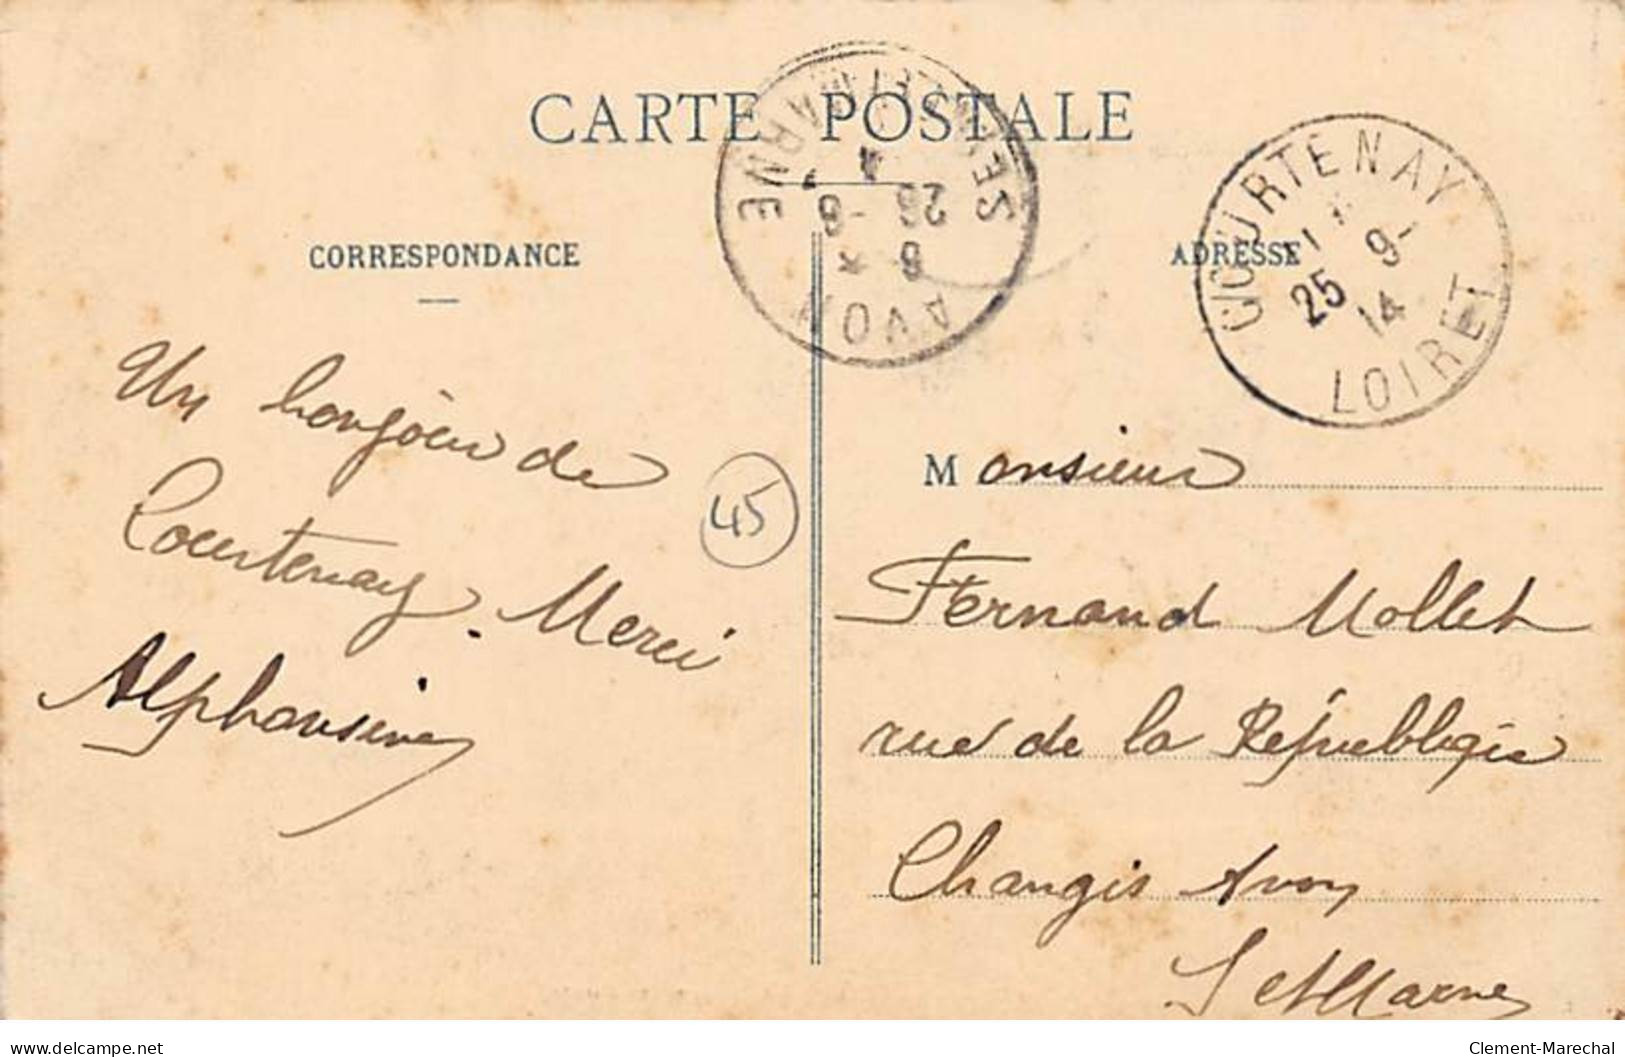 CARTE POSTALE
CORRESPONDANCE
ADRESSE
COURTENAY
25 9-
14
LOIRET
SEINE-ET-MARNE
AVON
Un bonjour de
Courtenay. Merci
Alphonsine
45
Monsieur
Fernand Mollet
rue de la République
Changis Avon
S et Marne
delcampe.net
Clement-Marechal